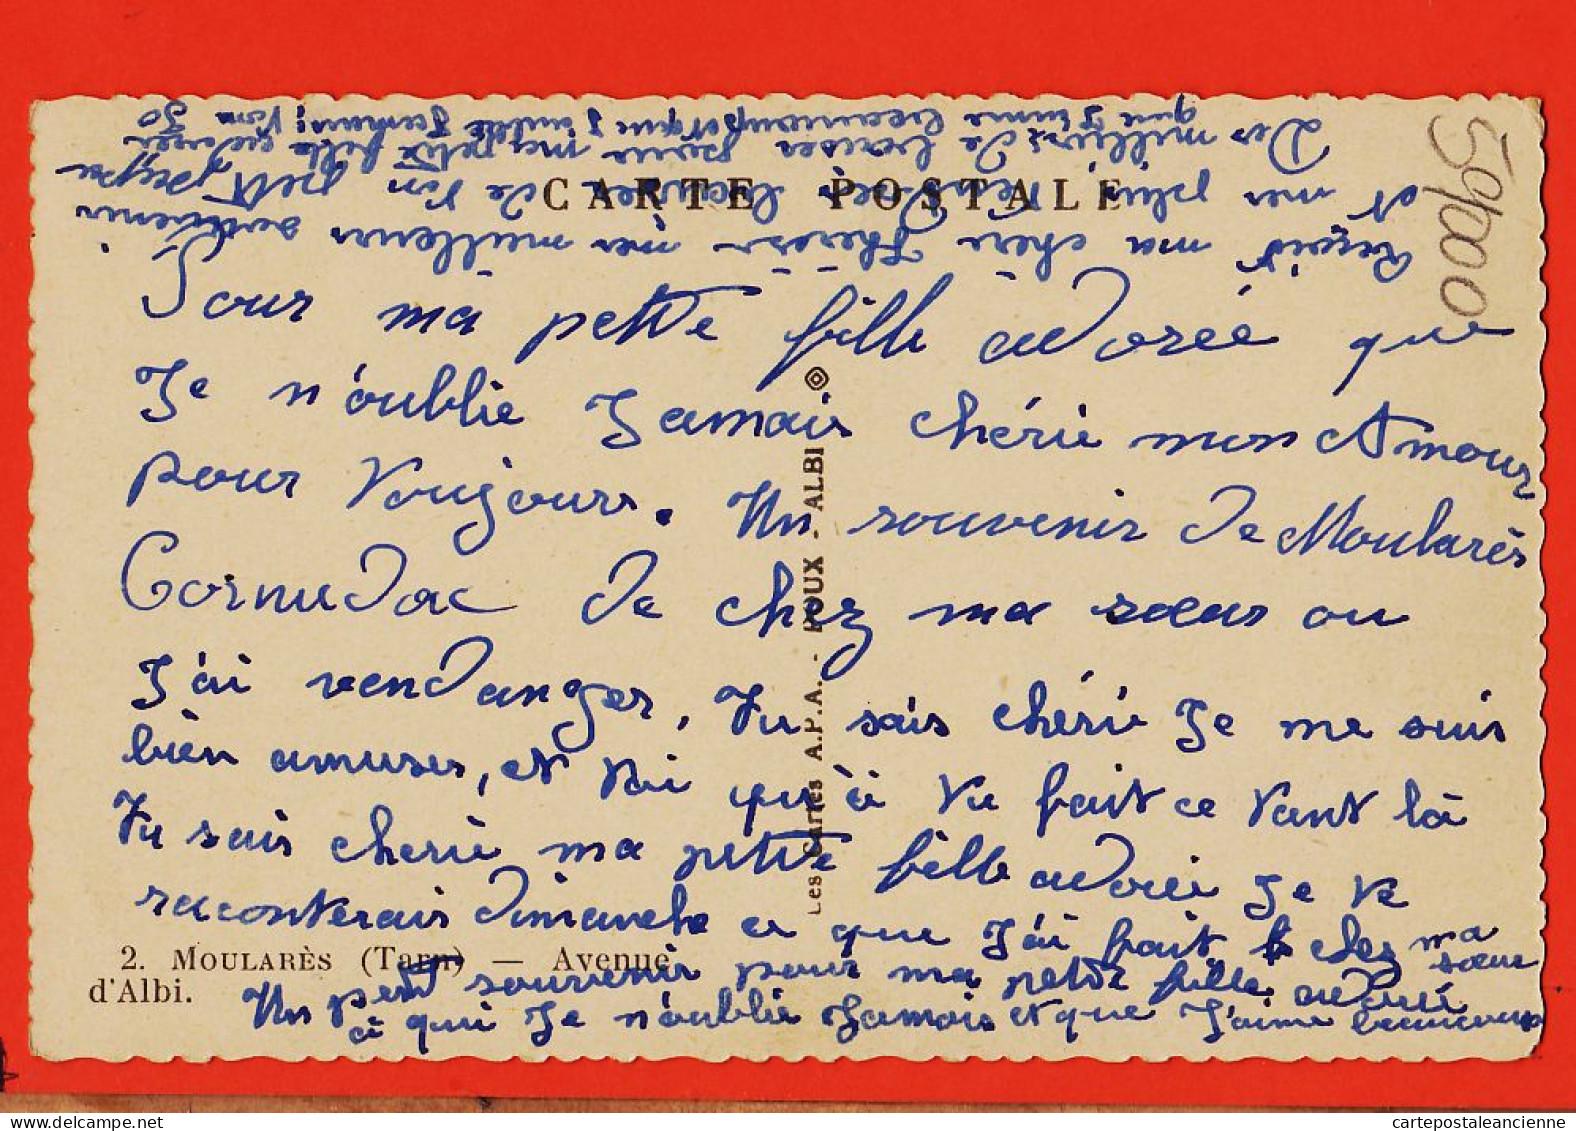 CARTE POSTALE
59000
Pour ma petite fille adorée que
Je n'oublie Jamais chérie mon Amour
pour Toujours. Un souvenir de Moularès
Cornudac de chez ma sœur ou
J'ai vendanger, Tu sais chérie Je me suis
bien amuser, et Toi qu'à Tu fait ce Tant là
Tu sais cherie ma petite fille adorée Je Te
raconterais dimanche ce que J'ai fait chez ma
sœur
Un petit souvenir pour ma petite fille adoré
à qui Je n'oublie Jamais et que J'aime beaucoup
Reçoit ma chère Thérèse mes meilleurs souvenir
et mes plus baiser de Ton petit papa
Des milliers de baiser pour ma petite fille
que J'aime beaucoup et que J'oublie Jamais
2. MOULARÈS (Tarn) — Avenue
d'Albi.
Les Cartes A.P.A. - POUX - ALBI
cartepostaleancienne